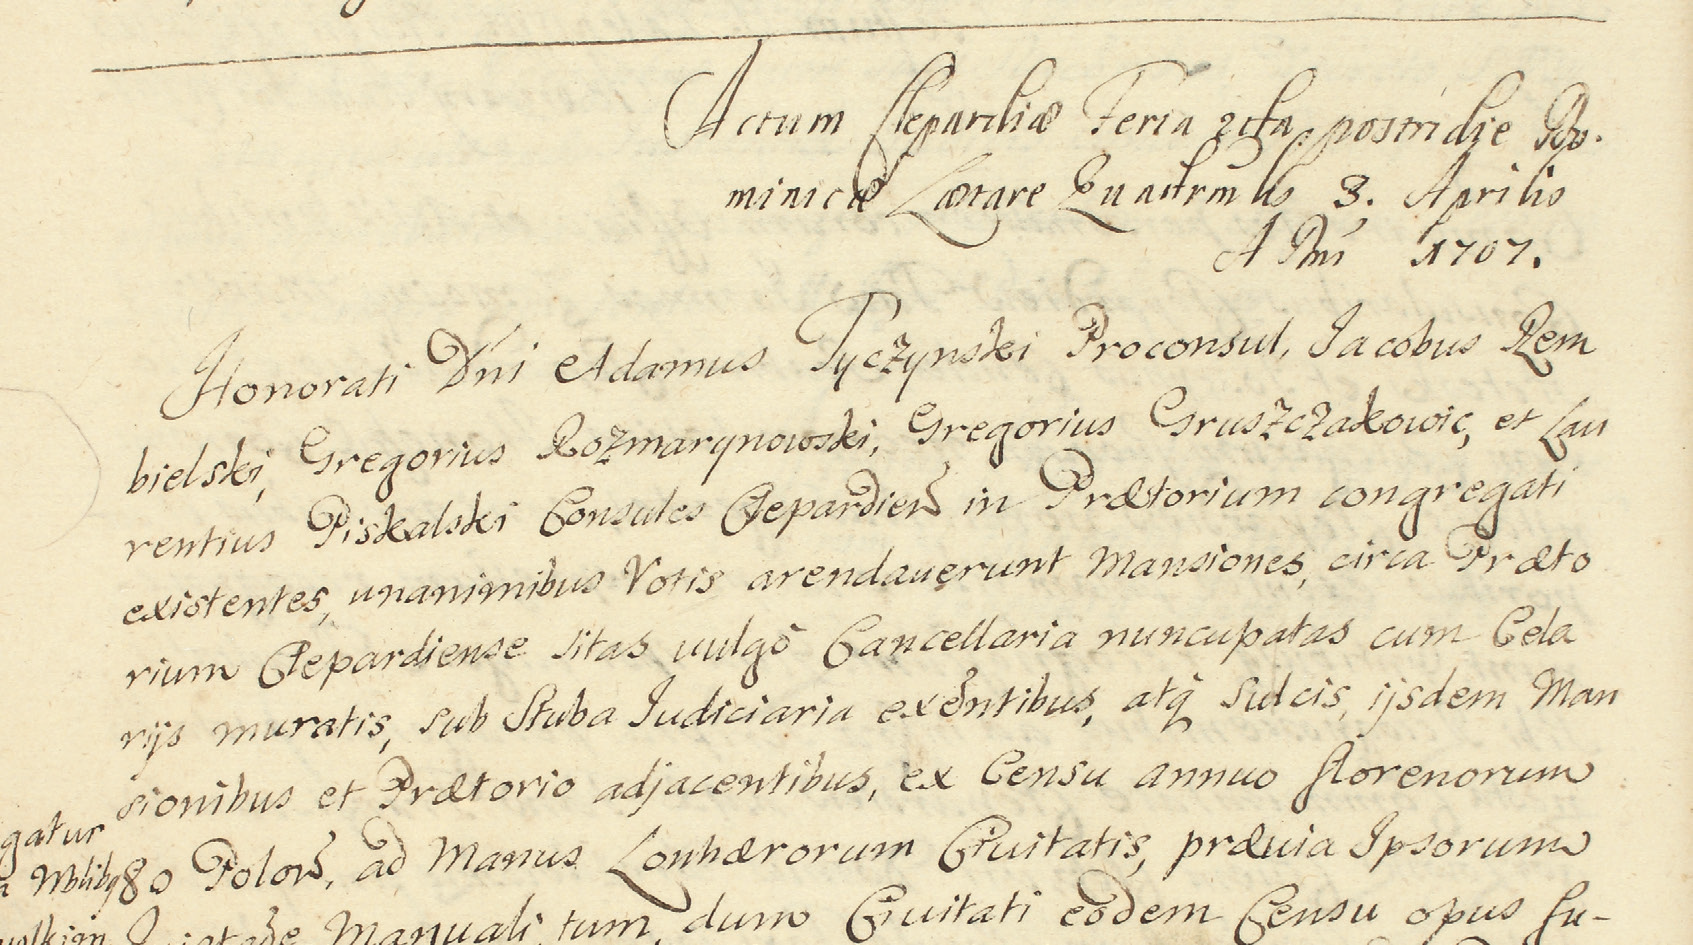 Actum Clepardiæ Feria 2da postridie Do-
minicæ Lætare Quadrmlis 3. Aprilis
A Dni 1707.
Honorati Dni Adamus Tyczynski Proconsul, Jacobus Rem
bielski, Gregorius Rozmarynowski, Gregorius Gruszczakowic, et Lau
rentius Piskalski Consules Clepardien in Prætorium congregati
existentes, unanimibus Votis arendauerunt Mansiones, circa Præto
rium Clepardiense sitas uulgò Cancellaria nuncupatas cum Cela
rijs muratis, sub Stuba Judiciaria exentibus, atq sulcis, ijsdem Man
sionibus et Prætorio adjacentibus, ex Censu annuo florenorum
gatur
80 Polon, ad Manus Lonhærorum Ciuitatis, præuia Ipsorum
Manuali, tum, dum Ciuitati eodem Censu opus fu-